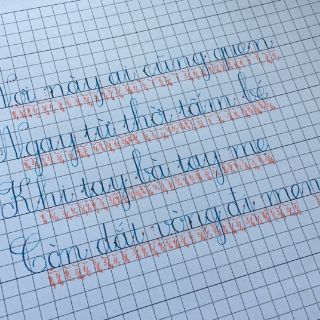 Nơi này ai cũng quen
Ngay từ thời tấm bé
Khi tay bà tay mẹ
Còn dắt vòng đi men